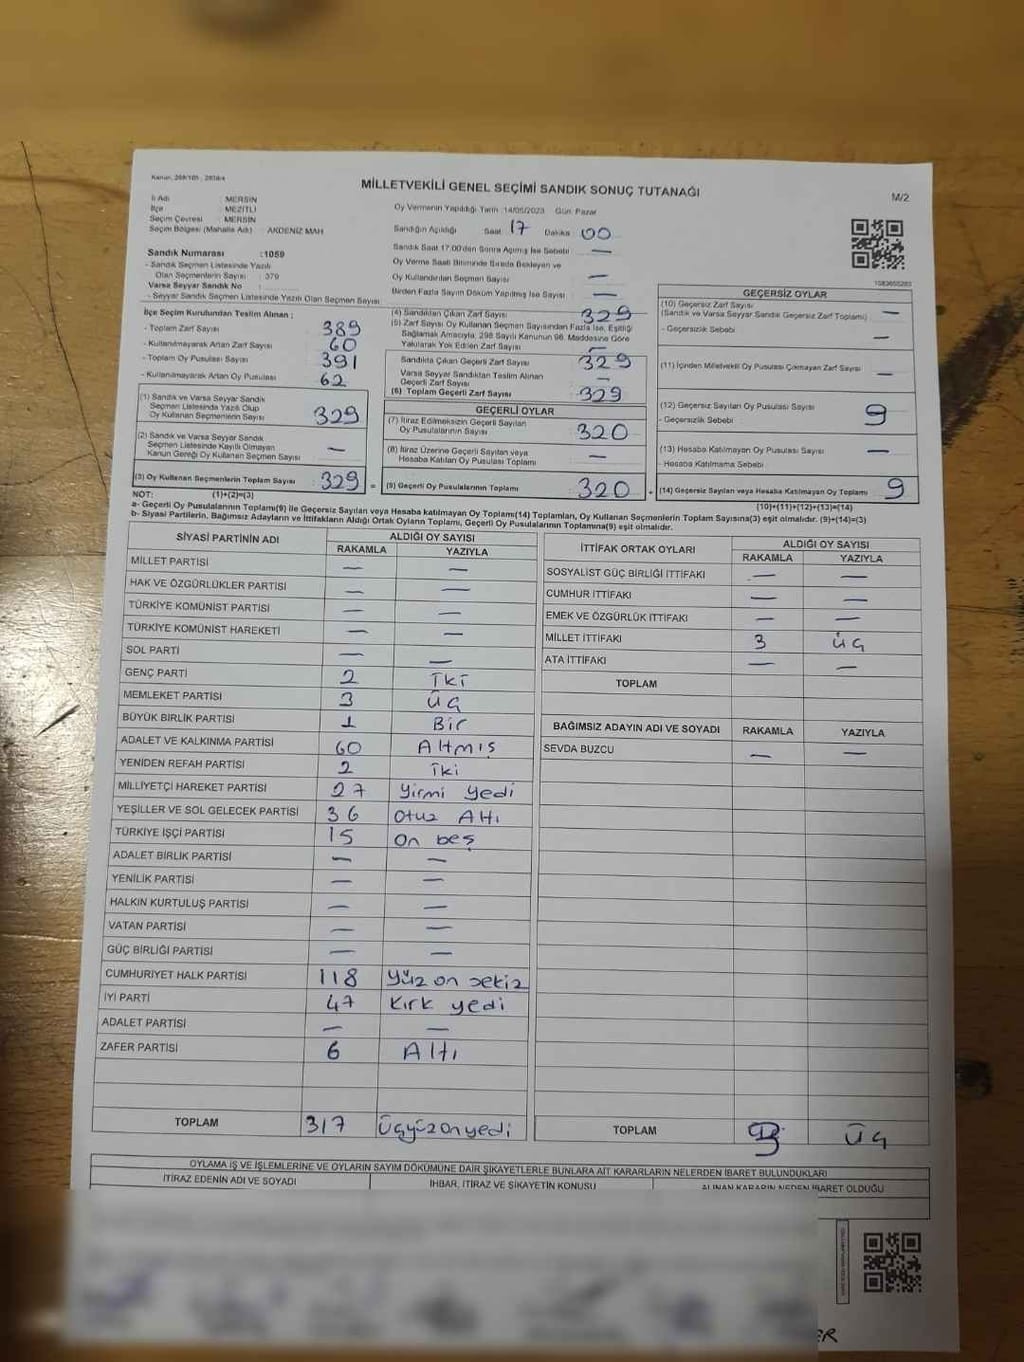 Kanun, 298/105 , 2839/4
MİLLETVEKİLİ GENEL SEÇİMİ SANDIK SONUÇ TUTANAĞI
M/2
İl Adı : MERSİN
İlçe : MEZİTLİ
Seçim Çevresi : MERSİN
Seçim Bölgesi (Mahalle Adı) : AKDENİZ MAH
Sandık Numarası :1059
- Sandık Seçmen Listesinde Yazılı
Olan Seçmenlerin Sayısı : 379
Varsa Seyyar Sandık No :
- Seyyar Sandık Seçmen Listesinde Yazılı Olan Seçmen Sayısı
Oy Vermenin Yapıldığı Tarih :14/05/2023 Gün: Pazar
Sandığın Açıldığı Saat 17 Dakika 00
Sandık Saat 17:00'den Sonra Açılmış İse Sebebi —
Oy Verme Saati Bitiminde Sırada Bekleyen ve
Oy Kullandırılan Seçmen Sayısı —
Birden Fazla Sayım Döküm Yapılmış İse Sayısı —
İlçe Seçim Kurulundan Teslim Alınan ;
- Toplam Zarf Sayısı 389
- Kullanılmayarak Artan Zarf Sayısı 60
- Toplam Oy Pusulası Sayısı 391
- Kullanılmayarak Artan Oy Pusulası 62
(1) Sandık ve Varsa Seyyar Sandık
Seçmen Listesinde Yazılı Olup
Oy Kullanan Seçmenlerin Sayısı 329
(2) Sandık ve Varsa Seyyar Sandık
Seçmen Listesinde Kayıtlı Olmayan
Kanun Gereği Oy Kullanan Seçmen Sayısı —
(3) Oy Kullanan Seçmenlerin Toplam Sayısı 329
(4) Sandıktan Çıkan Zarf Sayısı 329
(5) Zarf Sayısı Oy Kullanan Seçmen Sayısından Fazla İse, Eşitliği
Sağlamak Amacıyla, 298 Sayılı Kanunun 98. Maddesine Göre
Yakılarak Yok Edilen Zarf Sayısı —
Sandıkta Çıkan Geçerli Zarf Sayısı 329
Varsa Seyyar Sandıktan Teslim Alınan
Geçerli Zarf Sayısı —
(6) Toplam Geçerli Zarf Sayısı 329
GEÇERLİ OYLAR
(7) İtiraz Edilmeksizin Geçerli Sayılan
Oy Pusulalarının Sayısı 320
(8) İtiraz Üzerine Geçerli Sayılan veya
Hesaba Katılan Oy Pusulası Toplamı —
= (9) Geçerli Oy Pusulalarının Toplamı 320
1583655283
GEÇERSİZ OYLAR
(10) Geçersiz Zarf Sayısı
(Sandık ve Varsa Seyyar Sandık Geçersiz Zarf Toplamı) —
- Geçersizlik Sebebi —
(11) İçinden Milletvekili Oy Pusulası Çıkmayan Zarf Sayısı —
(12) Geçersiz Sayılan Oy Pusulası Sayısı 9
- Geçersizlik Sebebi
(13) Hesaba Katılmayan Oy Pusulası Sayısı —
- Hesaba Katılmama Sebebi
+ (14) Geçersiz Sayılan veya Hesaba Katılmayan Oy Toplamı 9
NOT: (1)+(2)=(3)
(10)+(11)+(12)+(13)=(14)
a- Geçerli Oy Pusulalarının Toplamı(9) ile Geçersiz Sayılan veya Hesaba katılmayan Oy Toplamı(14) Toplamları, Oy Kullanan Seçmenlerin Toplam Sayısına(3) eşit olmalıdır. (9)+(14)=(3)
b- Siyasi Partilerin, Bağımsız Adayların ve İttifakların Aldığı Ortak Oyların Toplamı, Geçerli Oy Pusulalarının Toplamına(9) eşit olmalıdır.
SİYASİ PARTİNİN ADI ALDIĞI OY SAYISI
RAKAMLA YAZIYLA
MİLLET PARTİSİ — —
HAK VE ÖZGÜRLÜKLER PARTİSİ — —
TÜRKİYE KOMÜNİST PARTİSİ — —
TÜRKİYE KOMÜNİST HAREKETİ — —
SOL PARTİ — —
GENÇ PARTİ 2 İki
MEMLEKET PARTİSİ 3 Üç
BÜYÜK BİRLİK PARTİSİ 1 Bir
ADALET VE KALKINMA PARTİSİ 60 Altmış
YENİDEN REFAH PARTİSİ 2 İki
MİLLİYETÇİ HAREKET PARTİSİ 27 Yirmi yedi
YEŞİLLER VE SOL GELECEK PARTİSİ 36 Otuz Altı
TÜRKİYE İŞÇİ PARTİSİ 15 On beş
ADALET BİRLİK PARTİSİ — —
YENİLİK PARTİSİ — —
HALKIN KURTULUŞ PARTİSİ — —
VATAN PARTİSİ — —
GÜÇ BİRLİĞİ PARTİSİ — —
CUMHURİYET HALK PARTİSİ 118 Yüz on sekiz
İYİ PARTİ 47 Kırk yedi
ADALET PARTİSİ — —
ZAFER PARTİSİ 6 Altı
TOPLAM 317 Üçyüzonyedi
İTTİFAK ORTAK OYLARI ALDIĞI OY SAYISI
RAKAMLA YAZIYLA
SOSYALİST GÜÇ BİRLİĞİ İTTİFAKI — —
CUMHUR İTTİFAKI — —
EMEK VE ÖZGÜRLÜK İTTİFAKI — —
MİLLET İTTİFAKI 3 Üç
ATA İTTİFAKI — —
TOPLAM
BAĞIMSIZ ADAYIN ADI VE SOYADI RAKAMLA YAZIYLA
SEVDA BUZCU — —
TOPLAM 3 Üç
OYLAMA İŞ VE İŞLEMLERİNE VE OYLARIN SAYIM DÖKÜMÜNE DAİR ŞİKAYETLERLE BUNLARA AİT KARARLARIN NELERDEN İBARET BULUNDUKLARI
İTİRAZ EDENİN ADI VE SOYADI İHBAR, İTİRAZ VE ŞİKAYETİN KONUSU ALINAN KARARIN NEDEN İBARET OLDUĞU